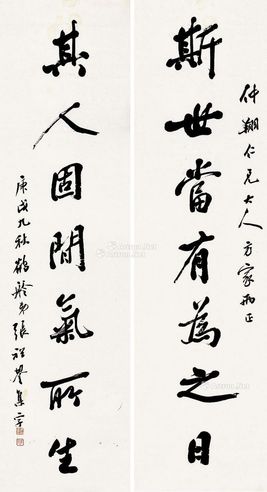 仲翔仁兄大人方家雨正
斯世當有為之日
其人固間氣所生
庚戌九秋 張祖 集字